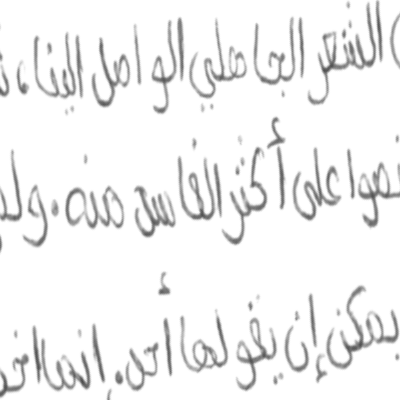 الشعر الجاهلي الواصل الينا،
على أكثر الفاسد منه. ولم
يمكن إن يقولها أحد. إنما